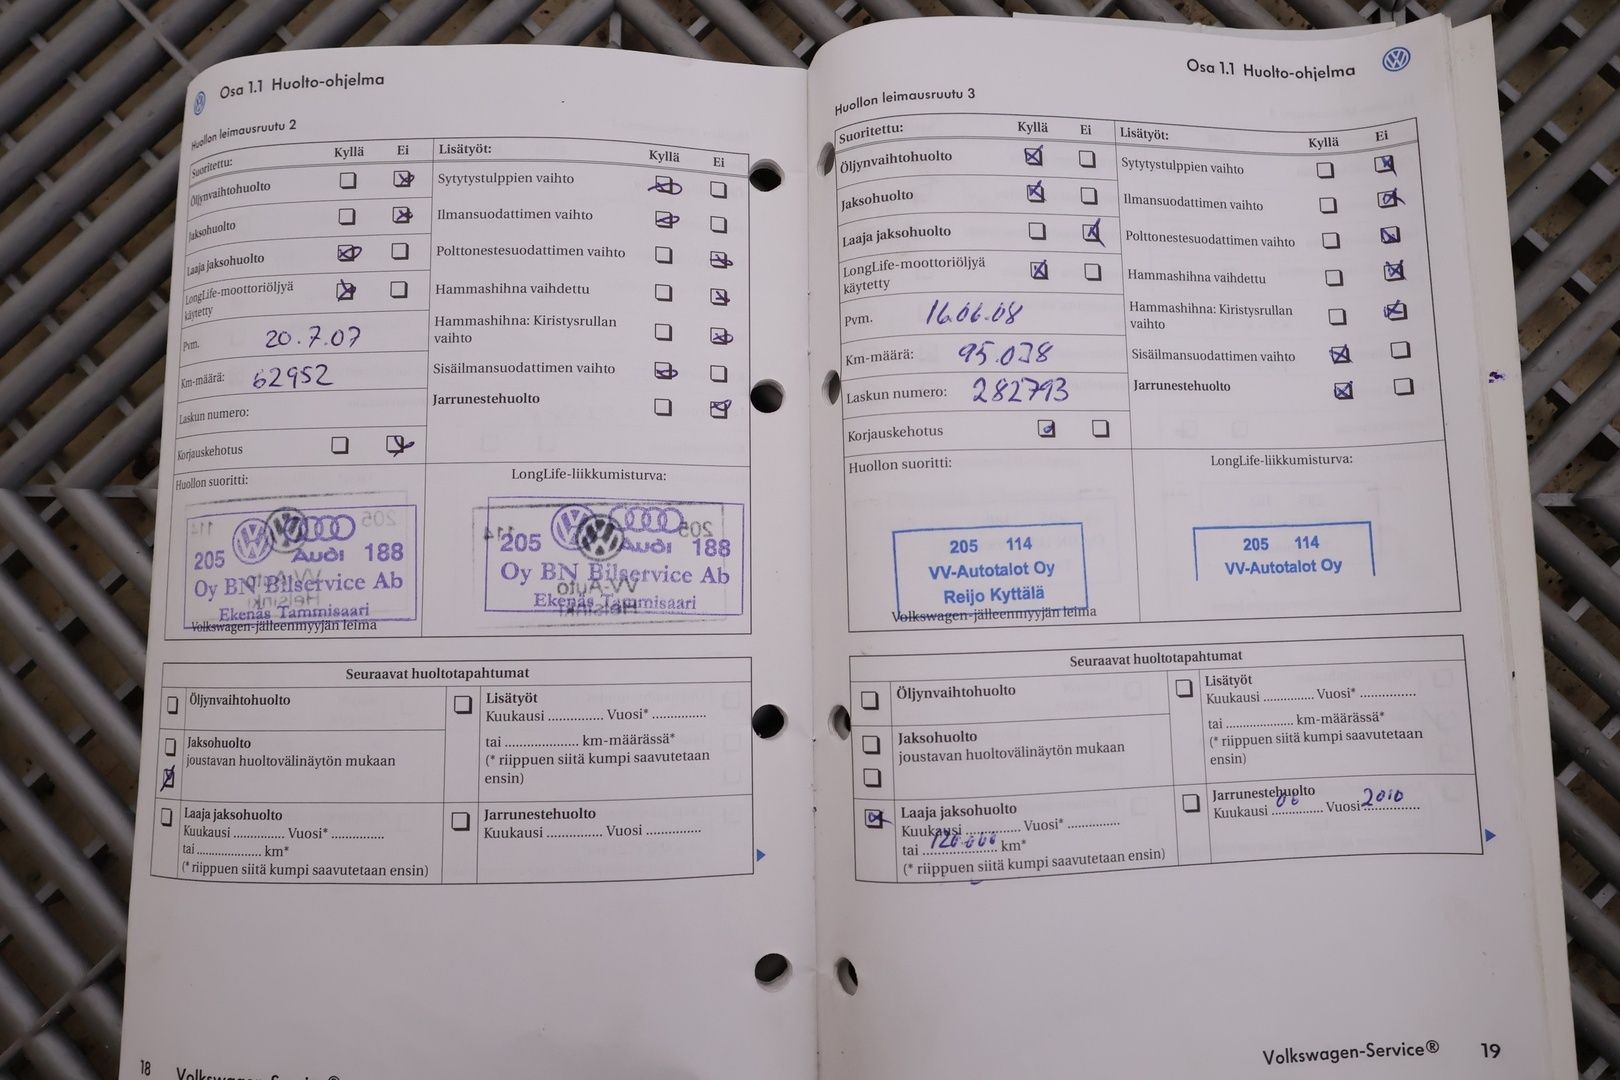 Osa 1.1 Huolto-ohjelma
Huollon leimausruutu 2
Suoritettu: Kyllä Ei
Öljynvaihtohuolto
Jaksohuolto
Laaja jaksohuolto
LongLife-moottoriöljyä
käytetty
Pvm. 20.7.07
Km-määrä: 62952
Laskun numero:
Korjauskehotus
Lisätyöt: Kyllä Ei
Sytytystulppien vaihto
Ilmansuodattimen vaihto
Polttonestesuodattimen vaihto
Hammashihna vaihdettu
Hammashihna: Kiristysrullan
vaihto
Sisäilmansuodattimen vaihto
Jarrunestehuolto
Huollon suoritti:
205 Audi 188
Oy BN Bilservice Ab
Ekenäs Tammisaari
Volkswagen-jälleenmyyjän leima
LongLife-liikkumisturva:
205 Audi 188
Oy BN Bilservice Ab
Ekenäs Tammisaari
Seuraavat huoltotapahtumat
Öljynvaihtohuolto
Jaksohuolto
joustavan huoltovälinäytön mukaan
Laaja jaksohuolto
Kuukausi .............. Vuosi* ..............
tai ..................... km*
(* riippuen siitä kumpi saavutetaan ensin)
Lisätyöt
Kuukausi ............... Vuosi* ..............
tai .................... km-määrässä*
(* riippuen siitä kumpi saavutetaan
ensin)
Jarrunestehuolto
Kuukausi ............... Vuosi ...............
18 Volkswagen-Service®
Osa 1.1 Huolto-ohjelma
Huollon leimausruutu 3
Suoritettu: Kyllä Ei
Öljynvaihtohuolto
Jaksohuolto
Laaja jaksohuolto
LongLife-moottoriöljyä
käytetty
Pvm. 16.06.08
Km-määrä: 95.038
Laskun numero: 282793
Korjauskehotus
Lisätyöt: Kyllä Ei
Sytytystulppien vaihto
Ilmansuodattimen vaihto
Polttonestesuodattimen vaihto
Hammashihna vaihdettu
Hammashihna: Kiristysrullan
vaihto
Sisäilmansuodattimen vaihto
Jarrunestehuolto
Huollon suoritti:
205 114
VV-Autotalot Oy
Reijo Kyttälä
Volkswagen-jälleenmyyjän leima
LongLife-liikkumisturva:
205 114
VV-Autotalot Oy
Seuraavat huoltotapahtumat
Öljynvaihtohuolto
Jaksohuolto
joustavan huoltovälinäytön mukaan
Laaja jaksohuolto
Kuukausi .............. Vuosi* ..............
tai 120.000 km*
(* riippuen siitä kumpi saavutetaan ensin)
Lisätyöt
Kuukausi .............. Vuosi* ...............
tai ................... km-määrässä*
(* riippuen siitä kumpi saavutetaan
ensin)
Jarrunestehuolto
Kuukausi 06 Vuosi 2010
Volkswagen-Service® 19